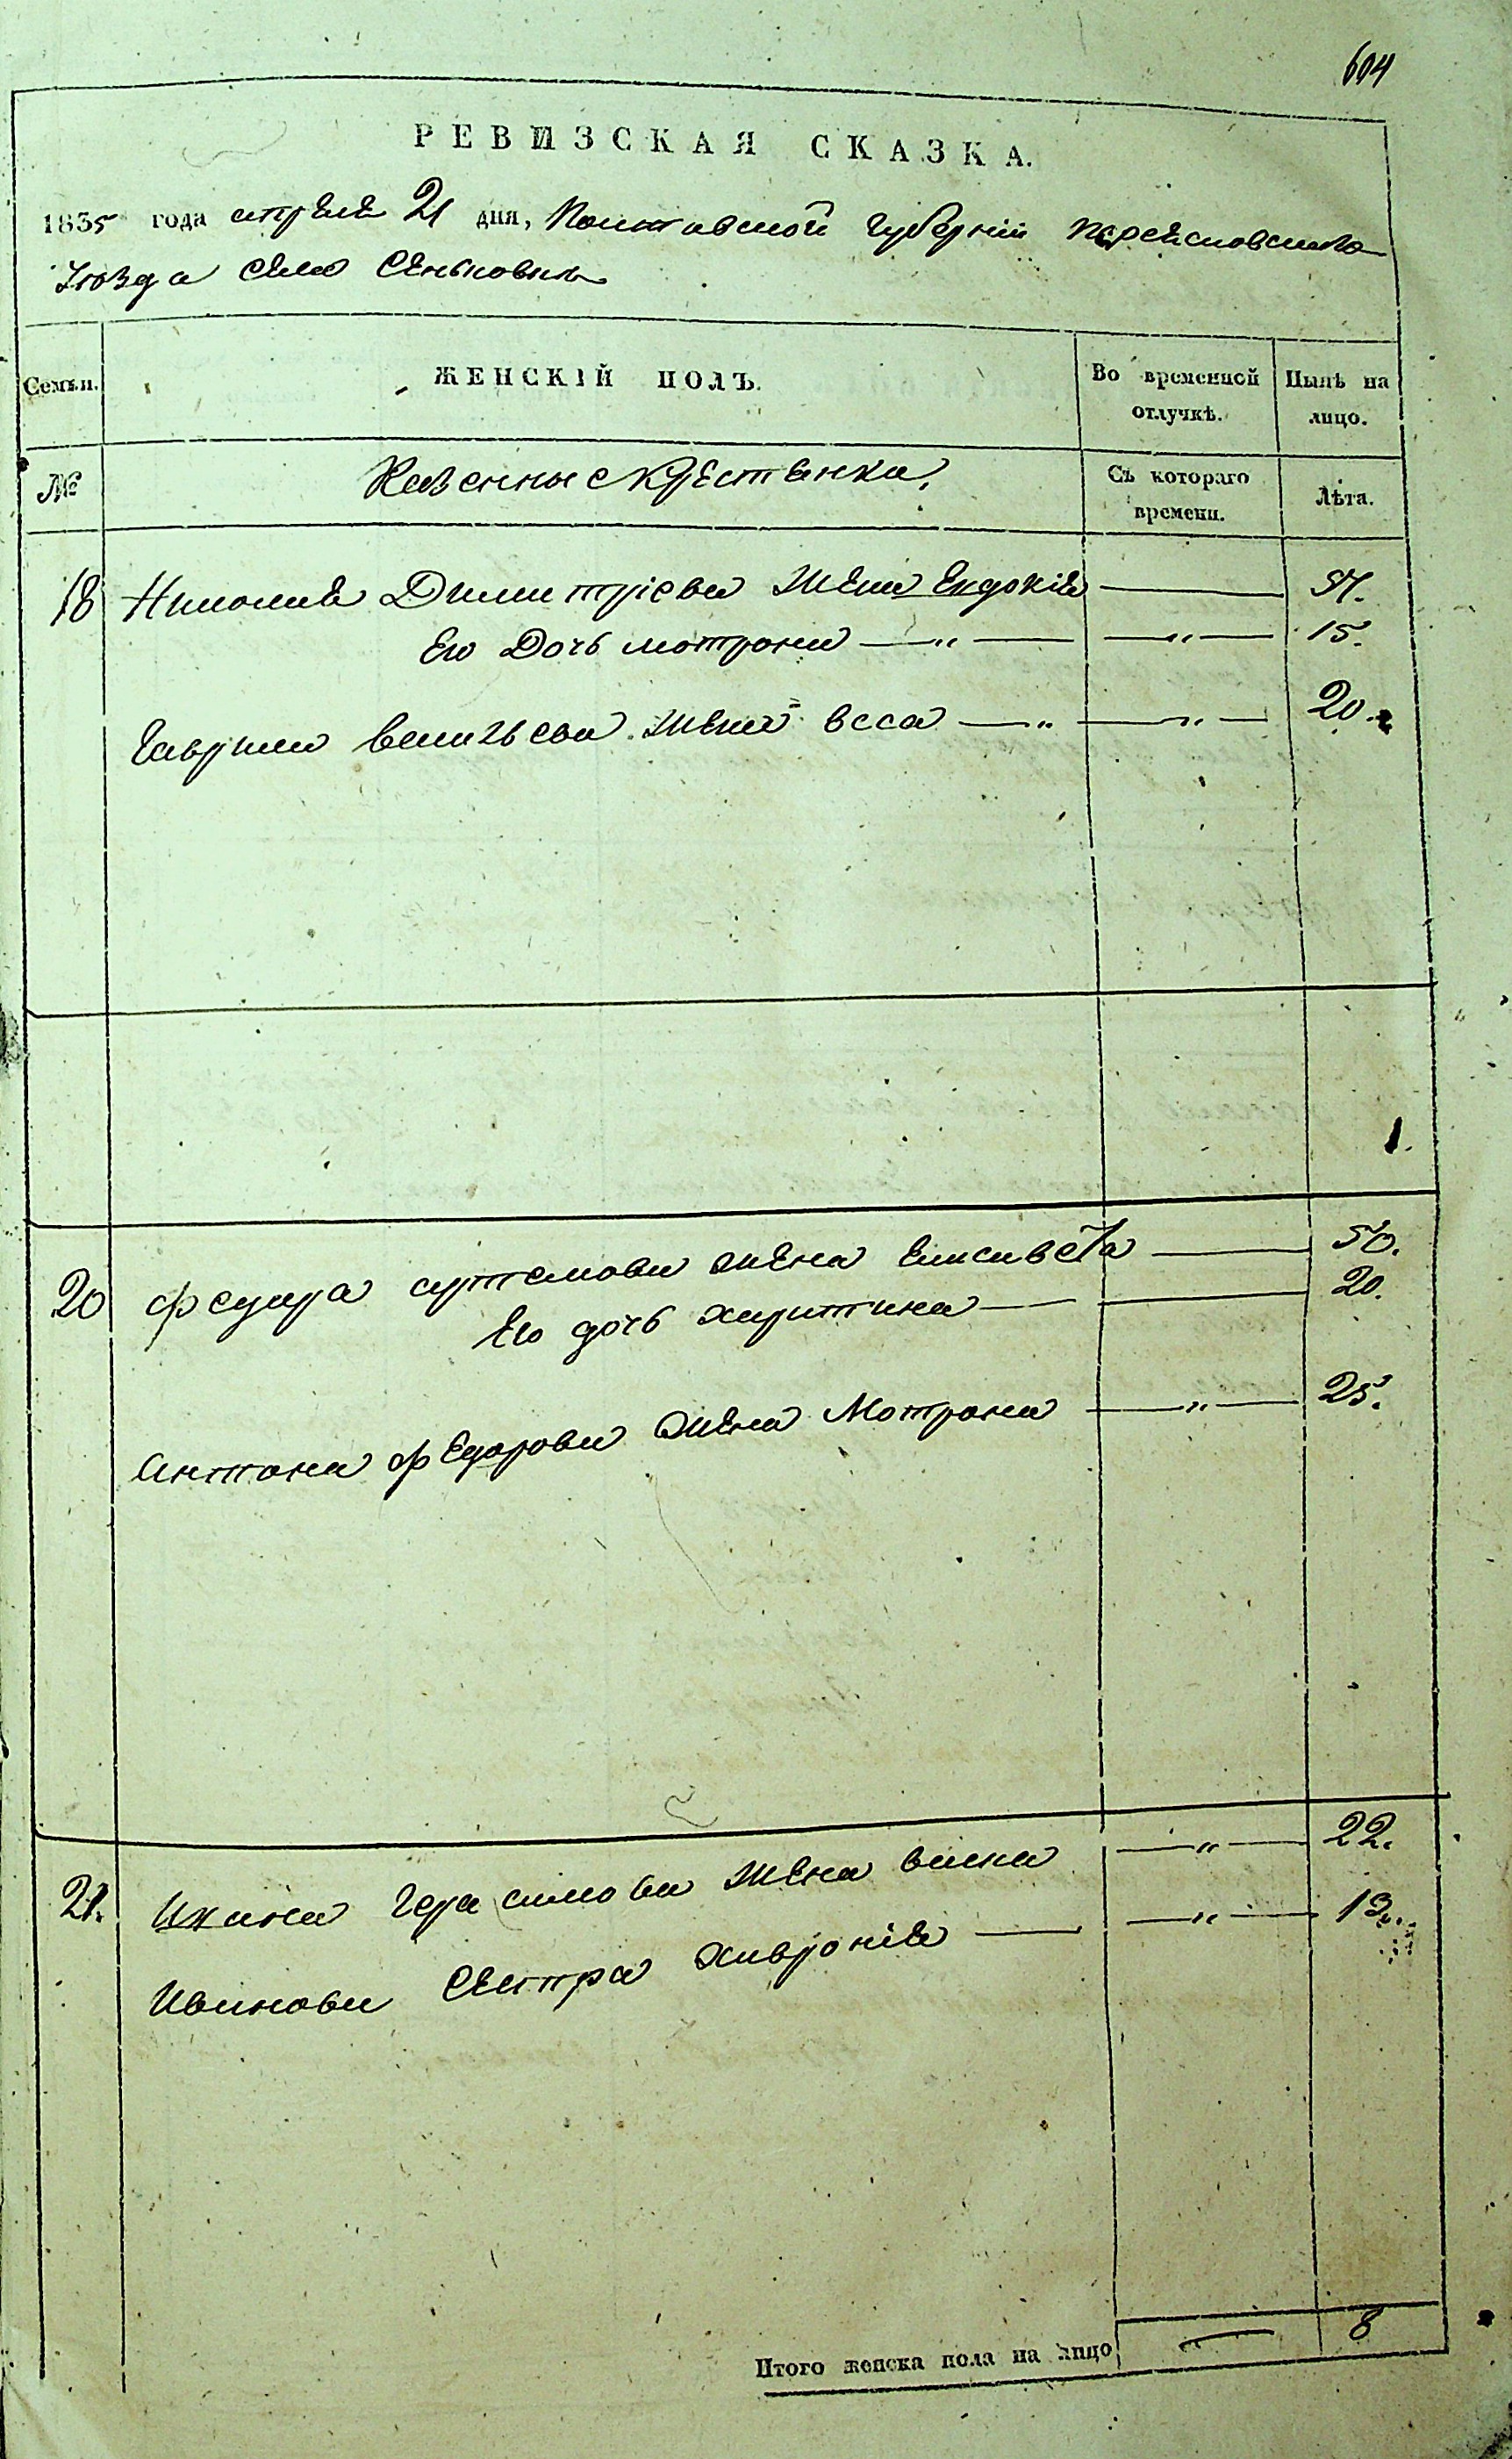 604
РЕВИЗСКАЯ СКАЗКА.
1835 года апреля 21 дня, Полтавской Губернии Переясловского
Уезда села Сеньковки
Семьи. ЖЕНСКІЙ ПОЛЪ. Во временной отлучкѣ. Нынѣ на лицо.
№ Казенные крестьянки. Съ котораго времени. Лѣта.
18 Николая Димитріева жена Евдокія 54.
Его Дочь мотрона — „ — — „ — 15.
Гаврила васильева жена васса — „ — „ — 20.
1.
20 Федора артемова жена Елисавета 50.
Его дочь харитина 20.
Антона Федорова жена Мотрона — „ — 25.
21. Ивана Герасимова жена — „ — 22.
Иванова Сестра хивронія — „ — 13.
Итого женска пола на лицо 8